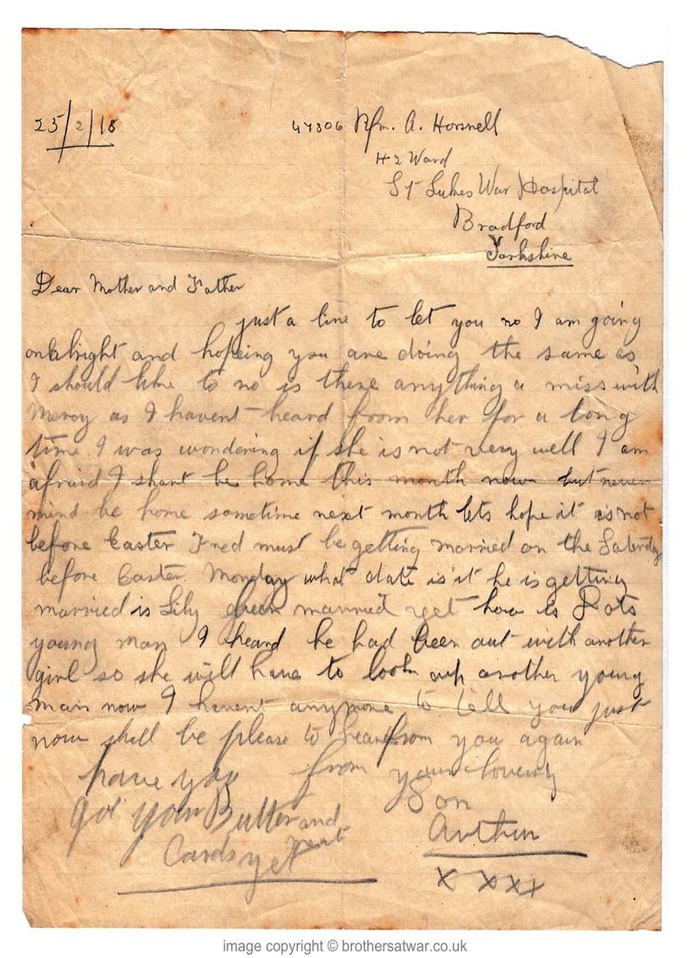 25/2/18
47306 Rfm. A. Horsnell
H2 Ward
St Lukes War Hospital
Bradford
Yorkshire
Dear Mother and Father
just a line to let you no I am going
on alright and hopeing you are doing the same as
I should like to no is there anything a miss with
Mercy as I havent heard from her for a long
time I was wondering if she is not very well I am
afraid I shant be home this month now but never
mind be home sometime next month lets hope it is not
before Easter Fred must be getting married on the Saterday
before Easter. Monday what date is it he is getting
married is Lily Green married yet how is Dots
young man I heard he had been out with another
girl so she will have to look up another young
man now I havent anymore to tell you just
now shall be please to hear from you again
from your loving
Son
Arthur
x x x x
have you
got your Butter and
meat
Cards yet
image copyright © brothersatwar.co.uk